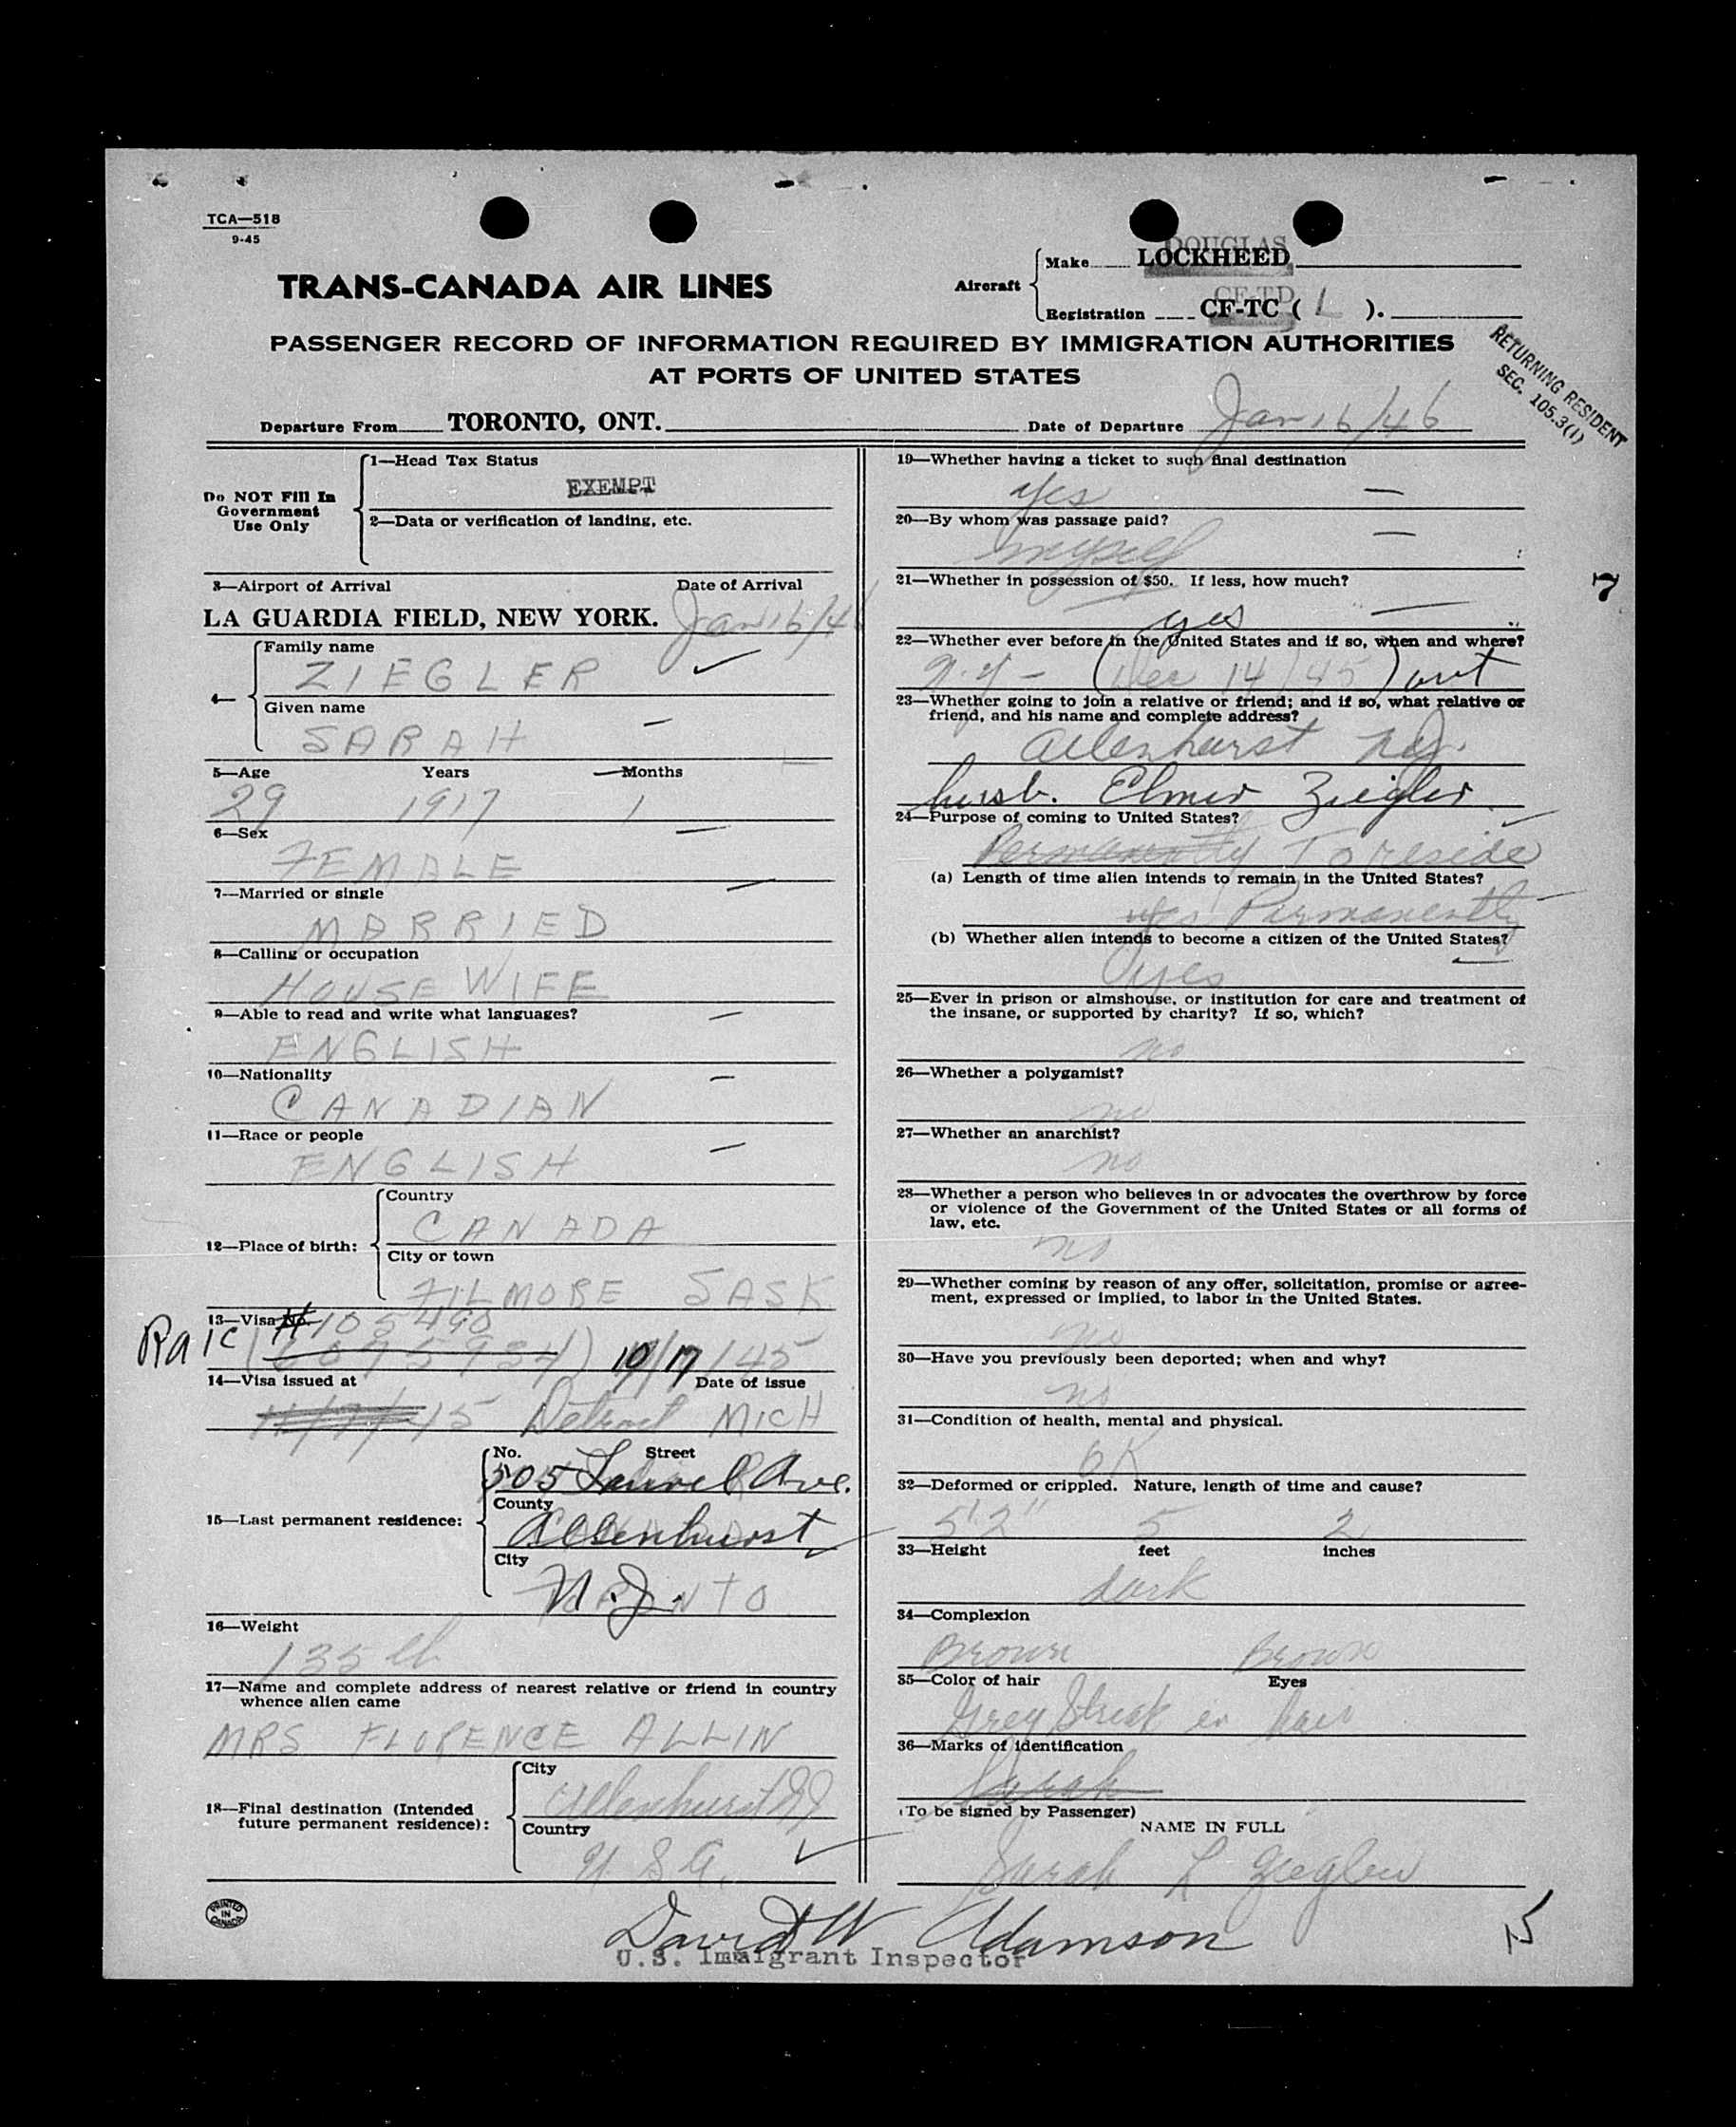 TCA—518
9-45
TRANS-CANADA AIR LINES
Aircraft
Make DOUGLAS LOCKHEED
Registration CF-TD CF-TC ( L ).
PASSENGER RECORD OF INFORMATION REQUIRED BY IMMIGRATION AUTHORITIES
AT PORTS OF UNITED STATES
RETURNING RESIDENT
SEC. 105.3(1)
Departure From TORONTO, ONT. Date of Departure Jan 16/46
Do NOT Fill In
Government
Use Only
1—Head Tax Status
EXEMPT
2—Data or verification of landing, etc.
3—Airport of Arrival Date of Arrival
LA GUARDIA FIELD, NEW YORK. Jan 16/46
4—
Family name
ZIEGLER
Given name
SARAH
5—Age Years Months
29 1917 1
6—Sex
FEMALE
7—Married or single
MARRIED
8—Calling or occupation
HOUSE WIFE
9—Able to read and write what languages?
ENGLISH
10—Nationality
CANADIAN
11—Race or people
ENGLISH
12—Place of birth:
Country
CANADA
City or town
FILMORE SASK
13—Visa No. 105490
10/17/45
14—Visa issued at Date of issue
45 Detroit MICH
15—Last permanent residence:
No. Street
505 Laurel Ave.
County
Allenhurst
City
N.J.
TORONTO
16—Weight
135 lb
17—Name and complete address of nearest relative or friend in country
whence alien came
MRS FLORENCE ALLIN
18—Final destination (Intended
future permanent residence):
City
Allenhurst NJ
Country
U.S.A.
19—Whether having a ticket to such final destination
yes
20—By whom was passage paid?
myself
21—Whether in possession of $50. If less, how much?
yes
22—Whether ever before in the United States and if so, when and where?
N.Y - (Dec 14/45) out
23—Whether going to join a relative or friend; and if so, what relative or
friend, and his name and complete address?
Allenhurst NJ.
husb. Elmer Ziegler.
24—Purpose of coming to United States?
Permanently To reside
(a) Length of time alien intends to remain in the United States?
yes Permanently
(b) Whether alien intends to become a citizen of the United States?
yes
25—Ever in prison or almshouse, or institution for care and treatment of
the insane, or supported by charity? If so, which?
no
26—Whether a polygamist?
no
27—Whether an anarchist?
no
28—Whether a person who believes in or advocates the overthrow by force
or violence of the Government of the United States or all forms of
law, etc.
no
29—Whether coming by reason of any offer, solicitation, promise or agree-
ment, expressed or implied, to labor in the United States.
no
30—Have you previously been deported; when and why?
no
31—Condition of health, mental and physical.
OK
32—Deformed or crippled. Nature, length of time and cause?
5'2" 5 2
33—Height feet inches
dark
34—Complexion
Brown Brown
35—Color of hair Eyes
Grey Streak in hair
36—Marks of identification
Sarah
(To be signed by Passenger)
NAME IN FULL
Sarah L Ziegler
7
PRINTED
IN
CANADA
David W Adamson
U.S. Immigrant Inspector